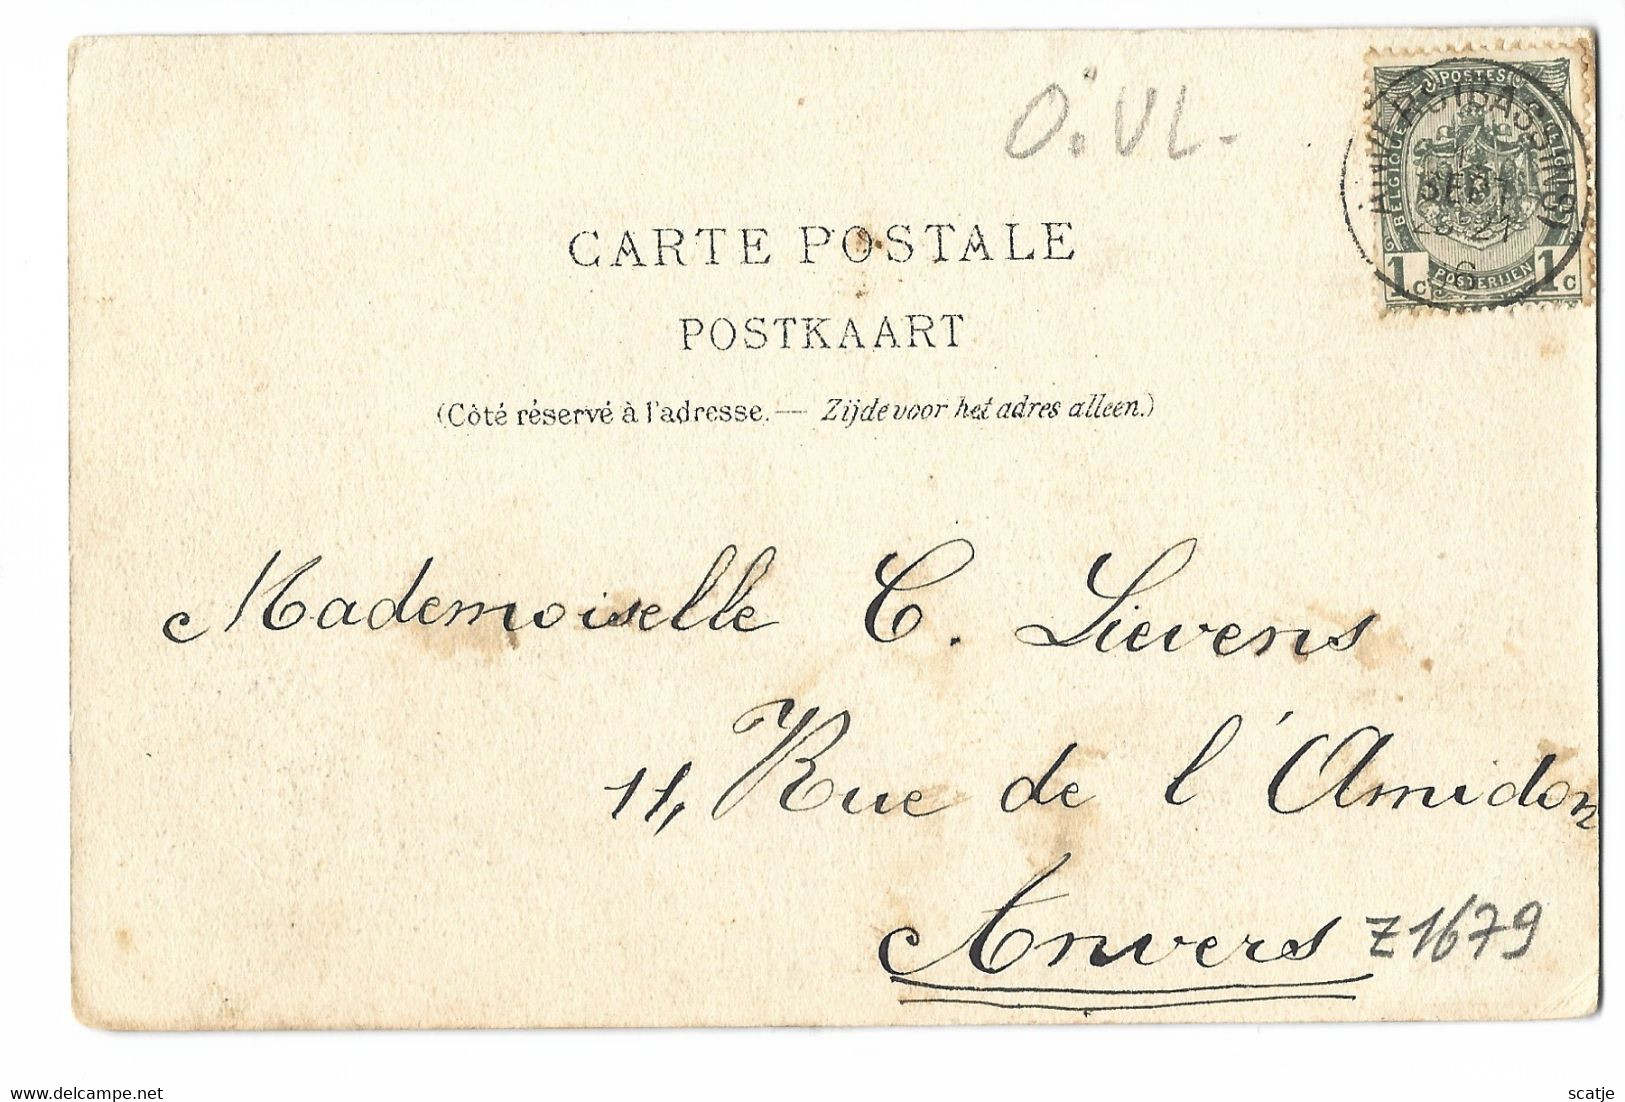 O.VL.
POSTES
BELGIQUE BELGIË
ANVERS (BASSINS)
SEPT
20-21
6
1c 1c
POSTERIJEN
CARTE POSTALE
POSTKAART
(Côté réservé à l'adresse. — Zijde voor het adres alleen.)
Mademoiselle C. Lievens
11, Rue de l'Amidon
Anvers
Z1679
www.delcampe.net
scatje